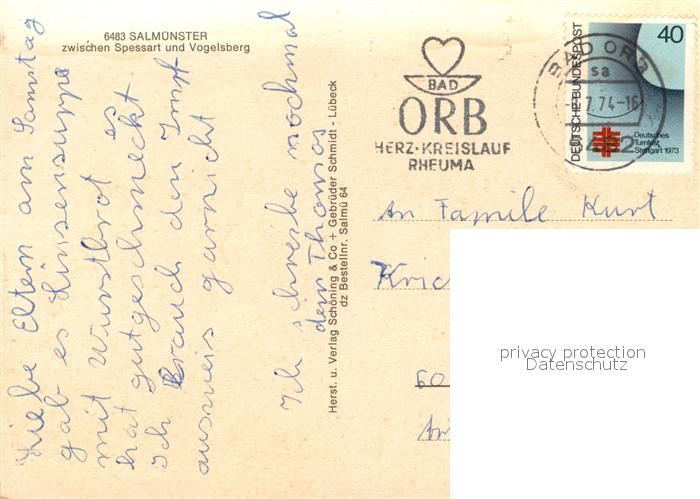 6483 SALMÜNSTER
zwischen Spessart und Vogelsberg
Liebe Eltern am Samstag
gab es Linsensuppe
mit Wurstbrot es
hat gutgeschmeckt
Ich brauch den Impf
ausweis garnicht
Ich schreibe nochmal
dein Thomas
Herst. u. Verlag Schöning & Co + Gebrüder Schmidt - Lübeck
dz Bestellnr. Salmü 64
BAD
ORB
HERZ·KREISLAUF
RHEUMA
BAD ORB
sa
7.74-16
DEUTSCHE BUNDESPOST
40
Deutsches
Turnfest
Stuttgart 1973
An Familie Kurt
60
privacy protection
Datenschutz